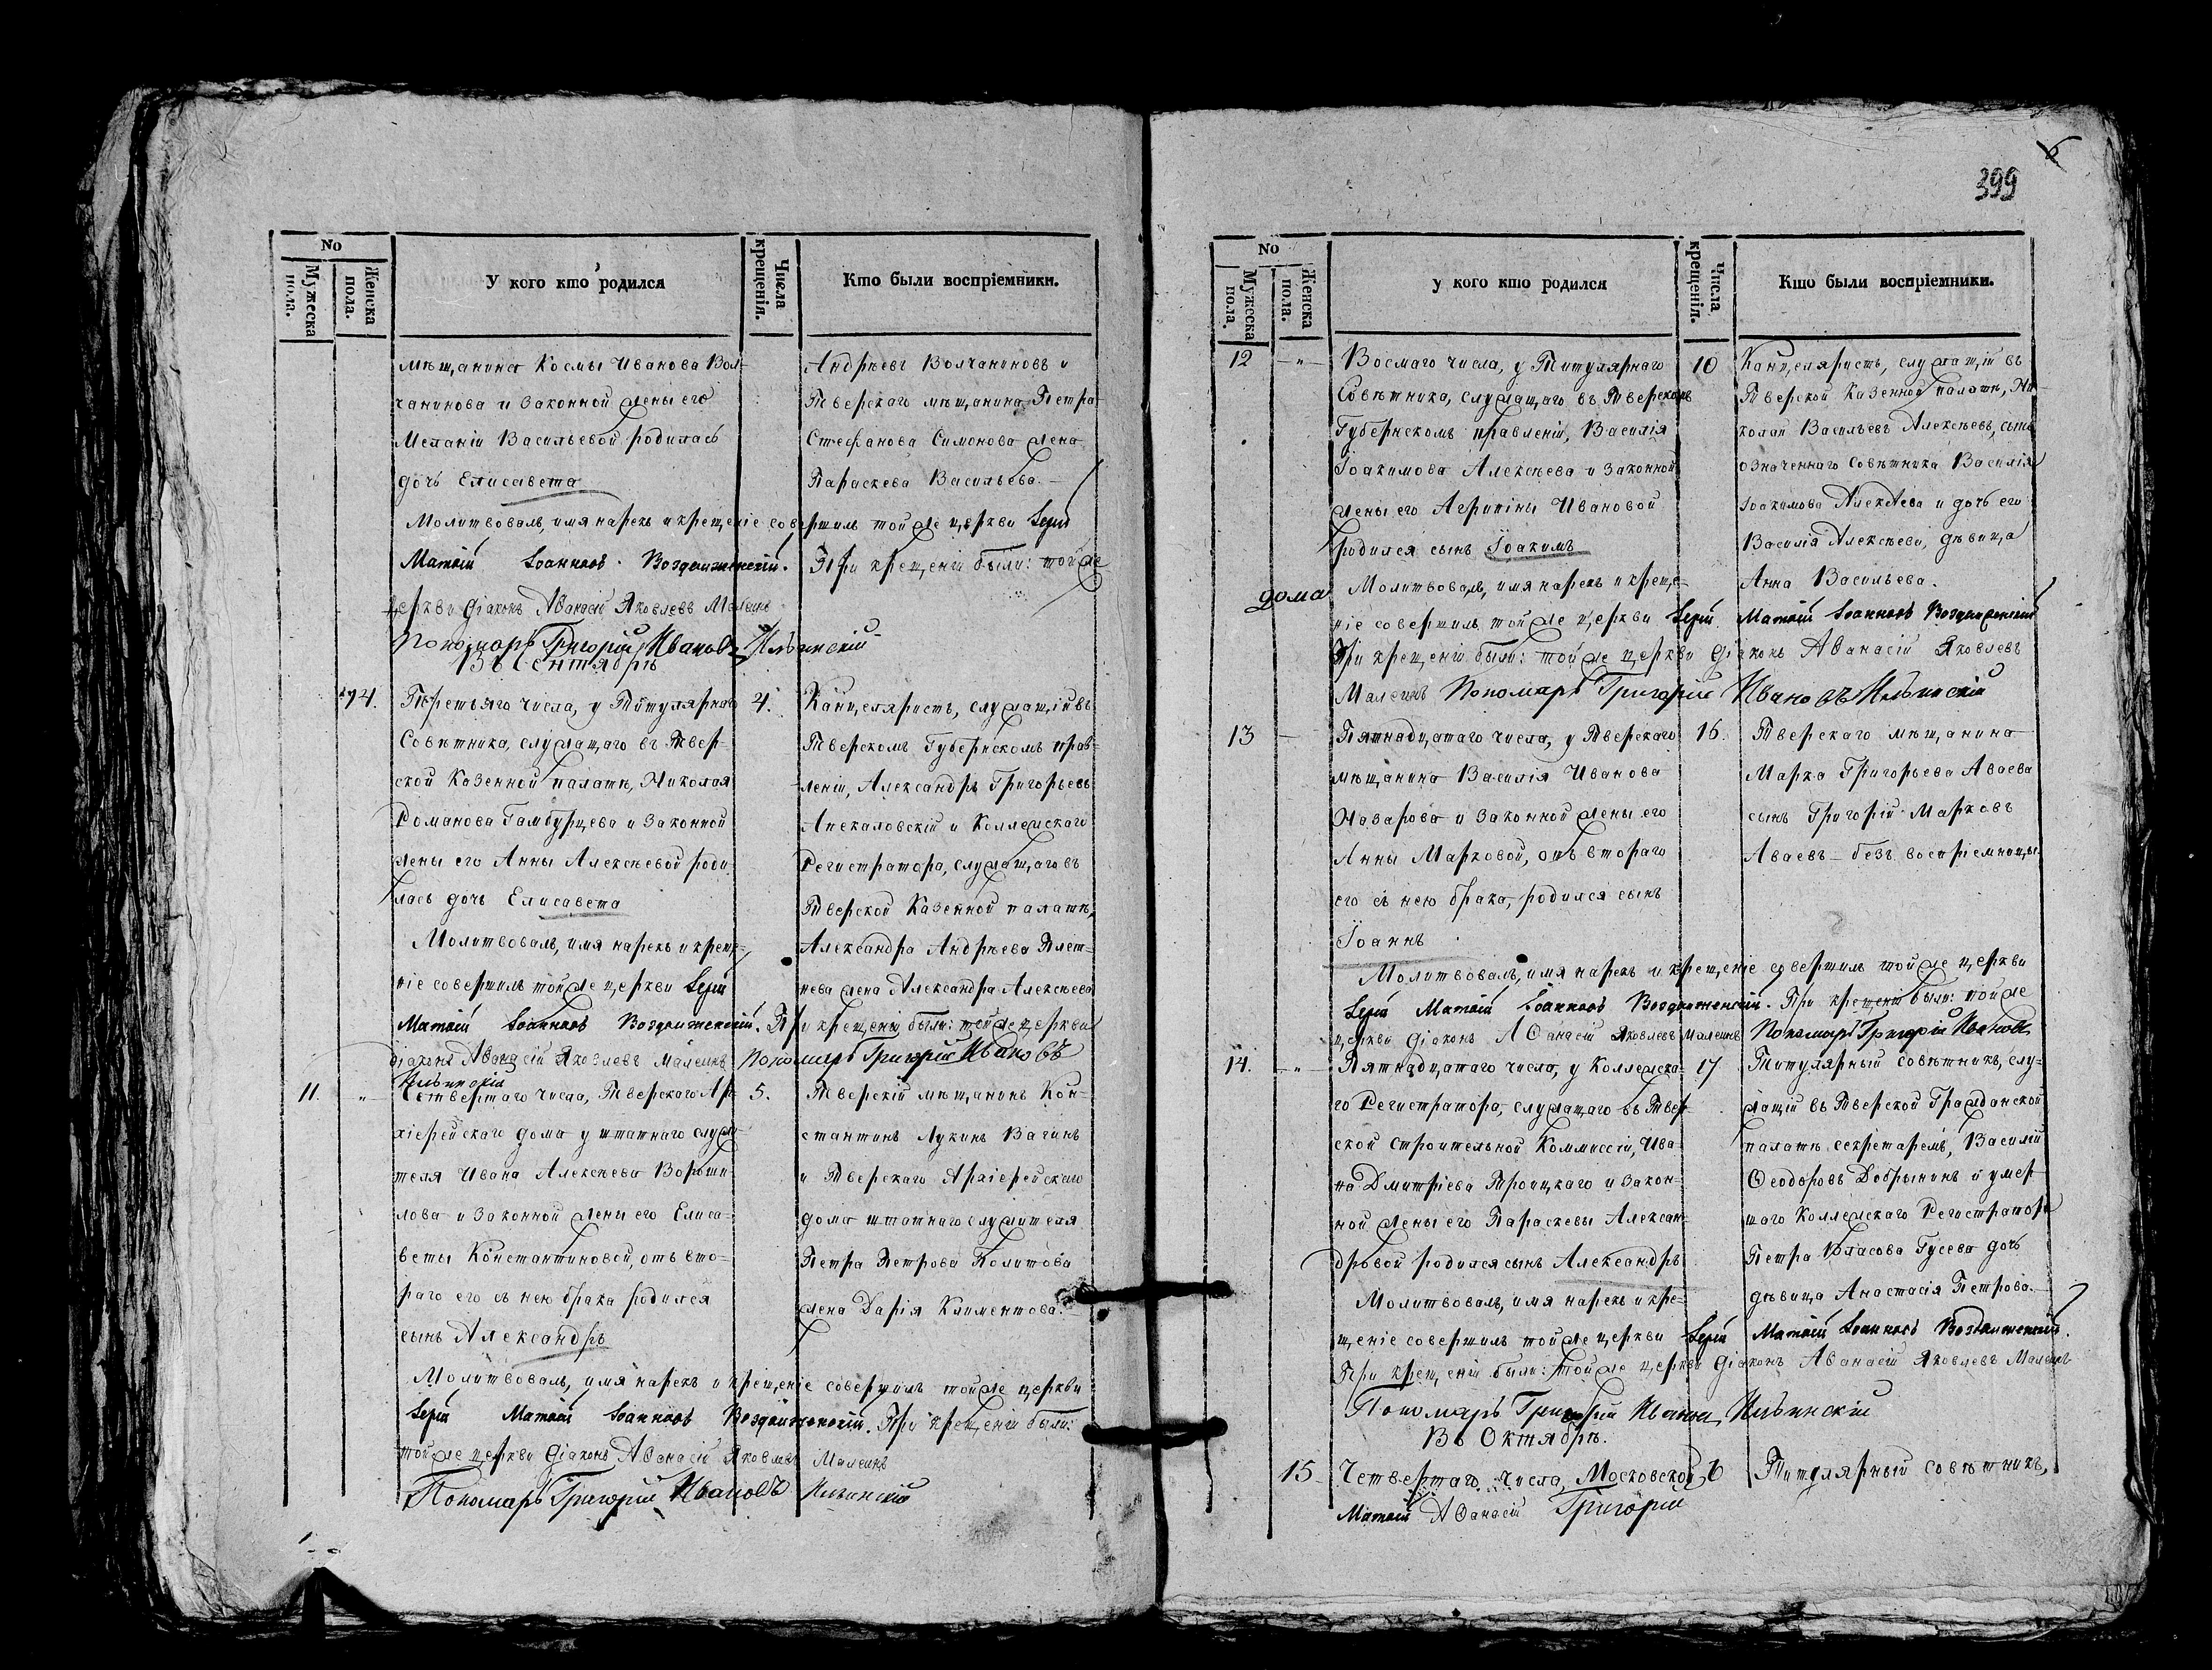 No
Мужеска пола.
Женска пола.
У кого кто родился
Числа крещенія.
Кто были воспріемники.
мѣщанина Космы Иванова Вол-
чанинова и законной жены его
Меланіи Васильевой родилась
дочь Елисавета
Андрѣевъ Волчаниновъ и
Тверскаго мѣщанина Петра
Стефанова Симонова жена
Параскева Васильева.
Молитвовалъ, имя нарекъ и крещеніе совершилъ тойже церкви Іерей
Матѳій Іоанновъ Воздвиженскій. При крещеніи были: тойже
церкви діаконъ Аѳанасій Яковлевъ Малеинъ
Пономарь Григорій Ивановъ Ильинскій
Въ Сентябрѣ
14.
Третьяго числа, у Титулярнаго
Совѣтника, служащаго въ Твер-
ской Казенной палатѣ, Николая
Романова Гамбурцева и законной
жены его Анны Алексѣевой роди
лась дочь Елисавета
4.
Канцеляристъ, служащій въ
Тверскомъ Губернскомъ прав-
леніи, Александръ Григорьевъ
Апекаловскій и Коллежскаго
Регистратора, служащаго въ
Тверской Казенной палатѣ,
Александра Андрѣева Плет-
нева жена Александра Алексѣева
Молитвовалъ, имя нарекъ и креще-
ніе совершилъ тойже церкви Іерей
Матѳій Іоанновъ Воздвиженскій. При крещеніи были: тойже церкви
діаконъ Аѳанасій Яковлевъ Малеинъ Пономарь Григорій Ивановъ
Ильинскій
11. „
Четвертаго числа, Тверскаго Ар-
хіерейскаго дома у штатнаго служи-
теля Ивана Алексѣева Вороши-
лова и законной жены его Елиса-
веты Константиновой, отъ вто-
раго его съ нею брака родился
сынъ Александръ
5.
Тверскій мѣщанинъ Кон-
стантинъ Лукинъ Вагинъ
и Тверскаго Архіерейскаго
дома штатнаго служителя
Петра Петрова Политова
жена Дарія Климентова.
Молитвовалъ, имя нарекъ и крещеніе совершилъ тойже церкви
Іерей Матѳій Іоанновъ Воздвиженскій. При крещеніи были:
тойже церкви діаконъ Аѳанасій Яковлевъ Малеинъ
Пономарь Григорій Ивановъ Ильинскій
399
No
Мужеска пола.
Женска пола.
у кого кто родился
Числа крещенія.
Кто были воспріемники.
12 „
Восмаго числа, у Титулярнаго
Совѣтника, служащаго въ Тверскомъ
Губернскомъ правленіи, Василія
Іоакимова Алексѣева и законной
жены его Агрипины Ивановой
родился сынъ Іоакимъ
10
Канцеляристъ, служащій въ
Тверской Казенной палатѣ, Ни-
колай Васильевъ Алексѣевъ, сынъ
означеннаго Совѣтника Василія
Іоакимова Алексѣева и дочь его
Василія Алексѣева, дѣвица
Анна Васильева.
дома
Молитвовалъ, имя нарекъ и креще-
ніе совершилъ тойже церкви Іерей Матѳій Іоанновъ Воздвиженскій
При крещеніи были: тойже церкви діаконъ Аѳанасій Яковлевъ
Малеинъ Пономарь Григорій Ивановъ Ильинскій
13
Пятнадцатаго числа, у Тверскаго
мѣщанина Василія Иванова
Назарова и законной жены его
Анны Марковой, отъ втораго
его съ нею брака, родился сынъ
Іоаннъ
16.
Тверскаго мѣщанина
Марка Григорьева Аваева
сынъ Григорій Марковъ
Аваевъ - безъ воспріемницы.
Молитвовалъ, имя нарекъ и крещеніе совершилъ тойже церкви
Іерей Матѳій Іоанновъ Воздвиженскій. При крещеніи были: тойже
церкви діаконъ Аѳанасій Яковлевъ Малеинъ Пономарь Григорій Ивановъ
14. „
Пятнадцатаго числа, у Коллежска-
го Регистратора, служащаго въ Твер-
ской строительной Коммиссіи, Ива-
на Дмитріева Троицкаго и закон-
ной жены его Параскевы Алексан-
дровой родился сынъ Александръ
17
Титулярный совѣтникъ, слу-
жащій въ Тверской Гражданской
палатѣ секретаремъ, Василій
Ѳеодоровъ Добрынинъ и умер-
шаго Коллежскаго Регистратора
Петра Власова Гусева дочь
дѣвица Анастасія Петрова.
Молитвовалъ, имя нарекъ и кре-
щеніе совершилъ тойже церкви Іерей Матѳій Іоанновъ Воздвиженскій.
При крещеніи были: тойже церкви діаконъ Аѳанасій Яковлевъ Малеинъ
Пономарь Григорій Ивановъ Ильинскій
Въ Октябрѣ.
15
Четвертаго числа, Московской
6
Титулярный совѣтникъ,
Матѳій Аѳанасій Григорій